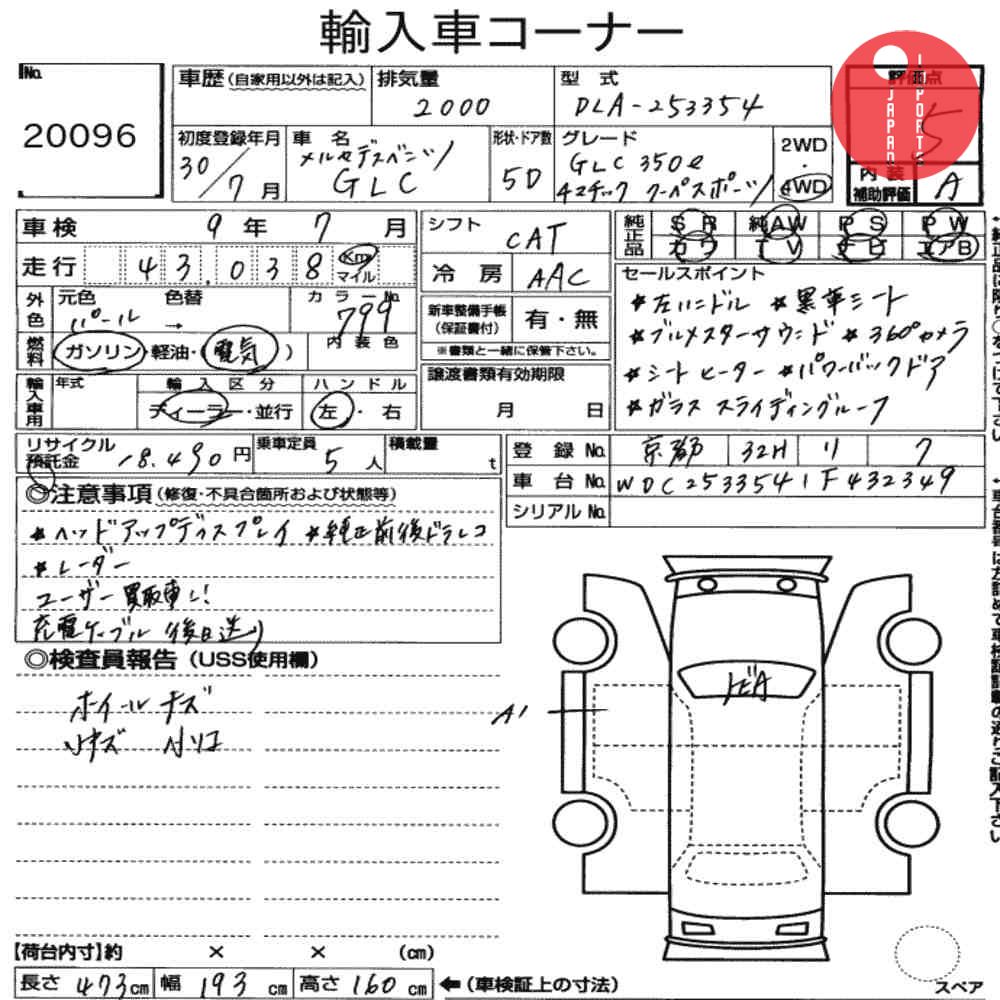 輸入車コーナー
No.
20096
車歴 (自家用以外は記入)
排気量
2000
型 式
DLA-253354
評価点
5
JAPAN IMPORTS
初度登録年月
30/7月
車 名
メルセデスベンツ
GLC
形状・ドア数
5D
グレード
GLC 350e
4マチック クーペスポーツ
2WD
・
4WD
内 装
補助評価
A
車検 9年 7月
シフト
CAT
純正品
SR 純AW PS PW
カワ TV ナビ エアB
走行 43,038 Km マイル
冷 房
AAC
外色
元色 色替
パール →
カラーNo.
799
内 装 色
燃料
ガソリン・軽油・(電気)
新車整備手帳
(保証書付)
有・無
※書類と一緒に保管下さい。
セールスポイント
*左ハンドル *黒革シート
*ブルメスターサウンド *360°カメラ
*シートヒーター *パワーバックドア
*ガラススライディングルーフ
輸入車用
年式
輸 入 区 分
ディーラー・並行
ハ ン ド ル
左・右
譲渡書類有効期限
月 日
リサイクル
預託金
18,490円
乗車定員
5人
積載量
t
登 録 No.
京都 32H リ 7
車 台 No.
WDC2533541F432349
シリアル No.
◎注意事項(修復・不具合箇所および状態等)
*ヘッドアップディスプレイ *純正前後ドラレコ
*レーダー
ユーザー買取車し!
充電ケーブル(後日送)
◎検査員報告(USS使用欄)
ホイールキズ
小キズ 小凹
A1
トビA
【荷台内寸】約 × × (cm)
長さ 473cm 幅 193cm 高さ 160cm ←(車検証上の寸法)
スペア